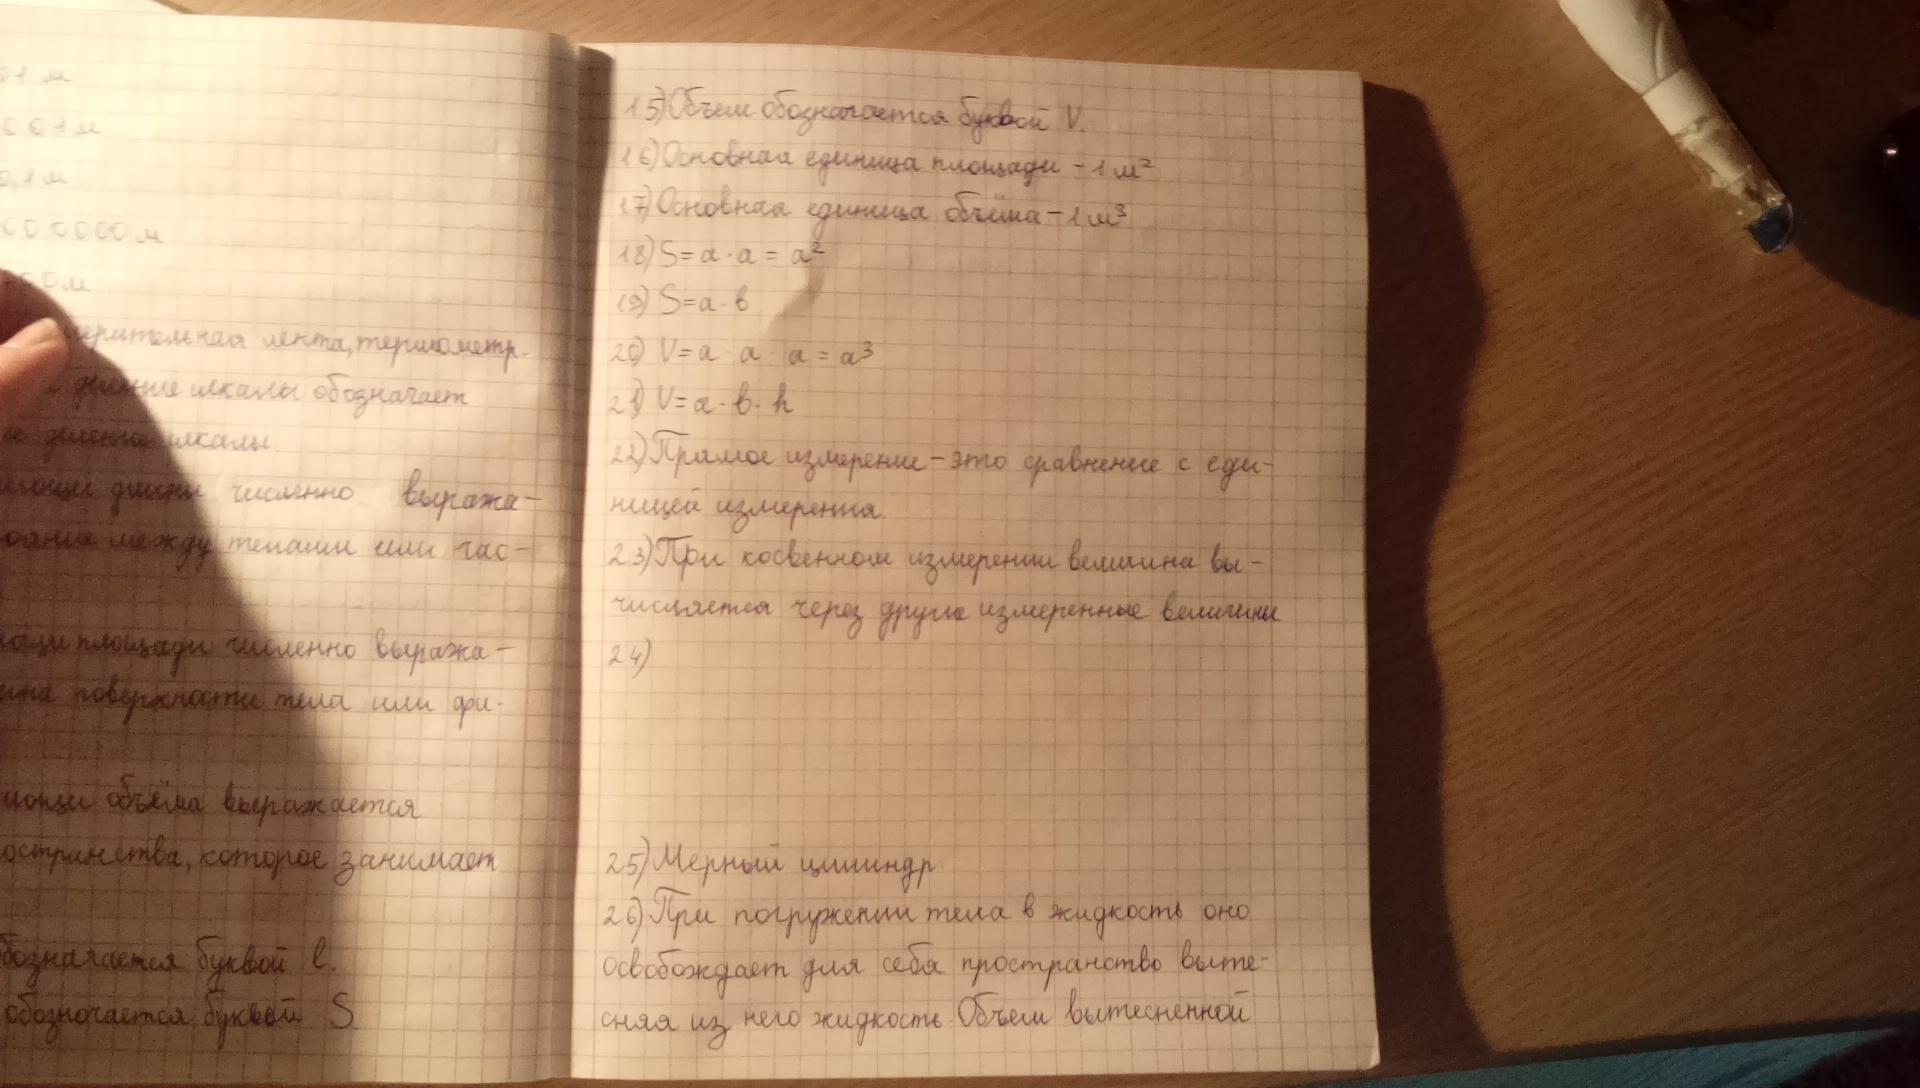 01 м
001 м
0,1 м
000000 м
00 м
мерительная лента, термометр.
деление шкалы обозначает
деления шкалы
мощи длины численно выража-
ояние между телами или час-
мощи площади численно выража-
ина поверхности тела или фи-
мощи объёма выражается
остранства, которое занимает
бозначается буквой l.
обозначается буквой S
15) Объем обозначается буквой V.
16) Основная единица площади - 1 м²
17) Основная единица объёма - 1 м³
18) S = a · a = a²
19) S = a · в
20) V = a · a · a = a³
21) V = a · в · h
22) Прямое измерение - это сравнение с еди-
ницей измерения.
23) При косвенном измерении величина вы-
числяется через другие измеренные величины
24)
25) Мерный цилиндр.
26) При погружении тела в жидкость оно
освобождает для себя пространство выте-
сняя из него жидкость. Объем вытесненной